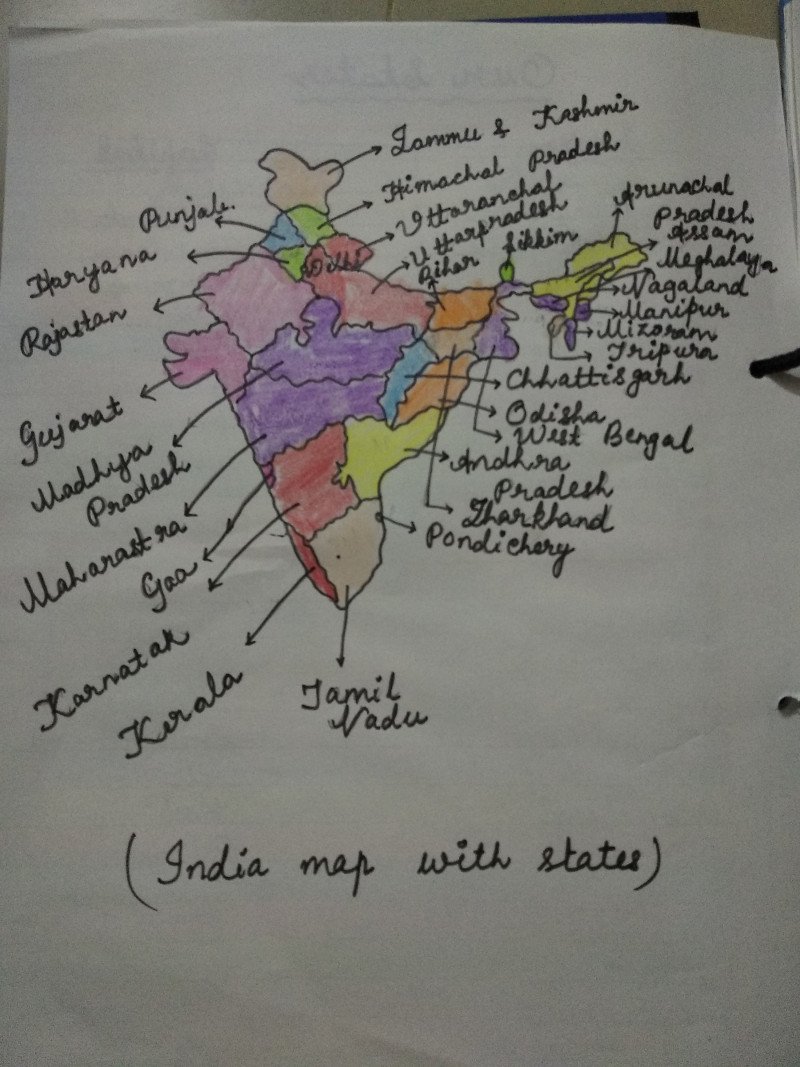 Jammu & Kashmir
Himachal Pradesh
Uttaranchal
Uttarpradesh
Bihar
Sikkim
Arunachal
Pradesh
Assam
Meghalaya
Nagaland
Manipur
Mizoram
Tripura
Chhattisgarh
Odisha
West Bengal
Andhra
Pradesh
Jharkhand
Pondichery
Punjab.
Haryana
Delhi
Rajastan
Gujarat
Madhya
Pradesh
Maharastra
Goa
Karnatak
Kerala
Tamil
Nadu
(India map with states)